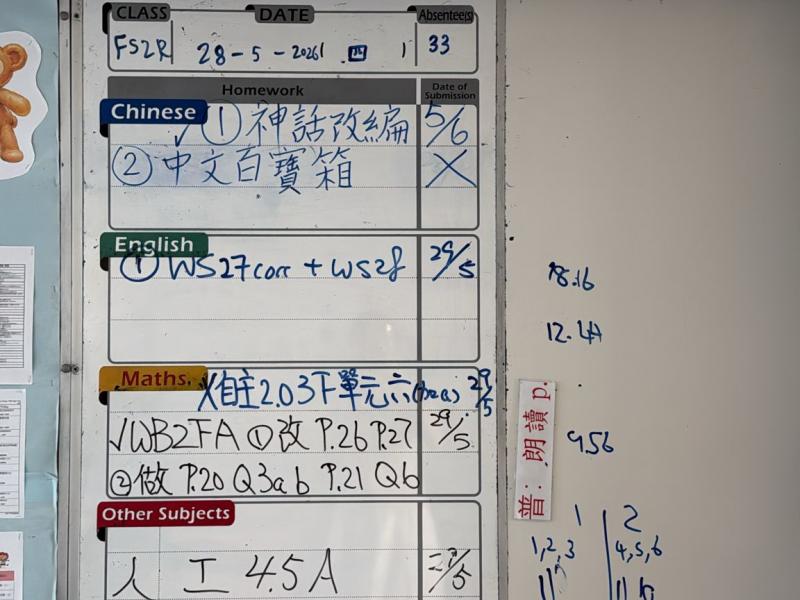 CLASS DATE Absentee(s)
FS2R 28-5-2026 四 33
Homework Date of Submission
Chinese
✓① 神話改編 5/6
② 中文百寶箱 X
English
① WS27corr + WS28 29/5
Maths.
X自主2.03下單元六 29/5
✓WB2FA ①改 P.26 P.27 29/5
②做 P.20 Q3ab P.21 Q6
Other Subjects
人工 4.5A 29/5
18.16
12.44
普：朗讀 p.
9.56
1 2
1,2,3 4,5,6